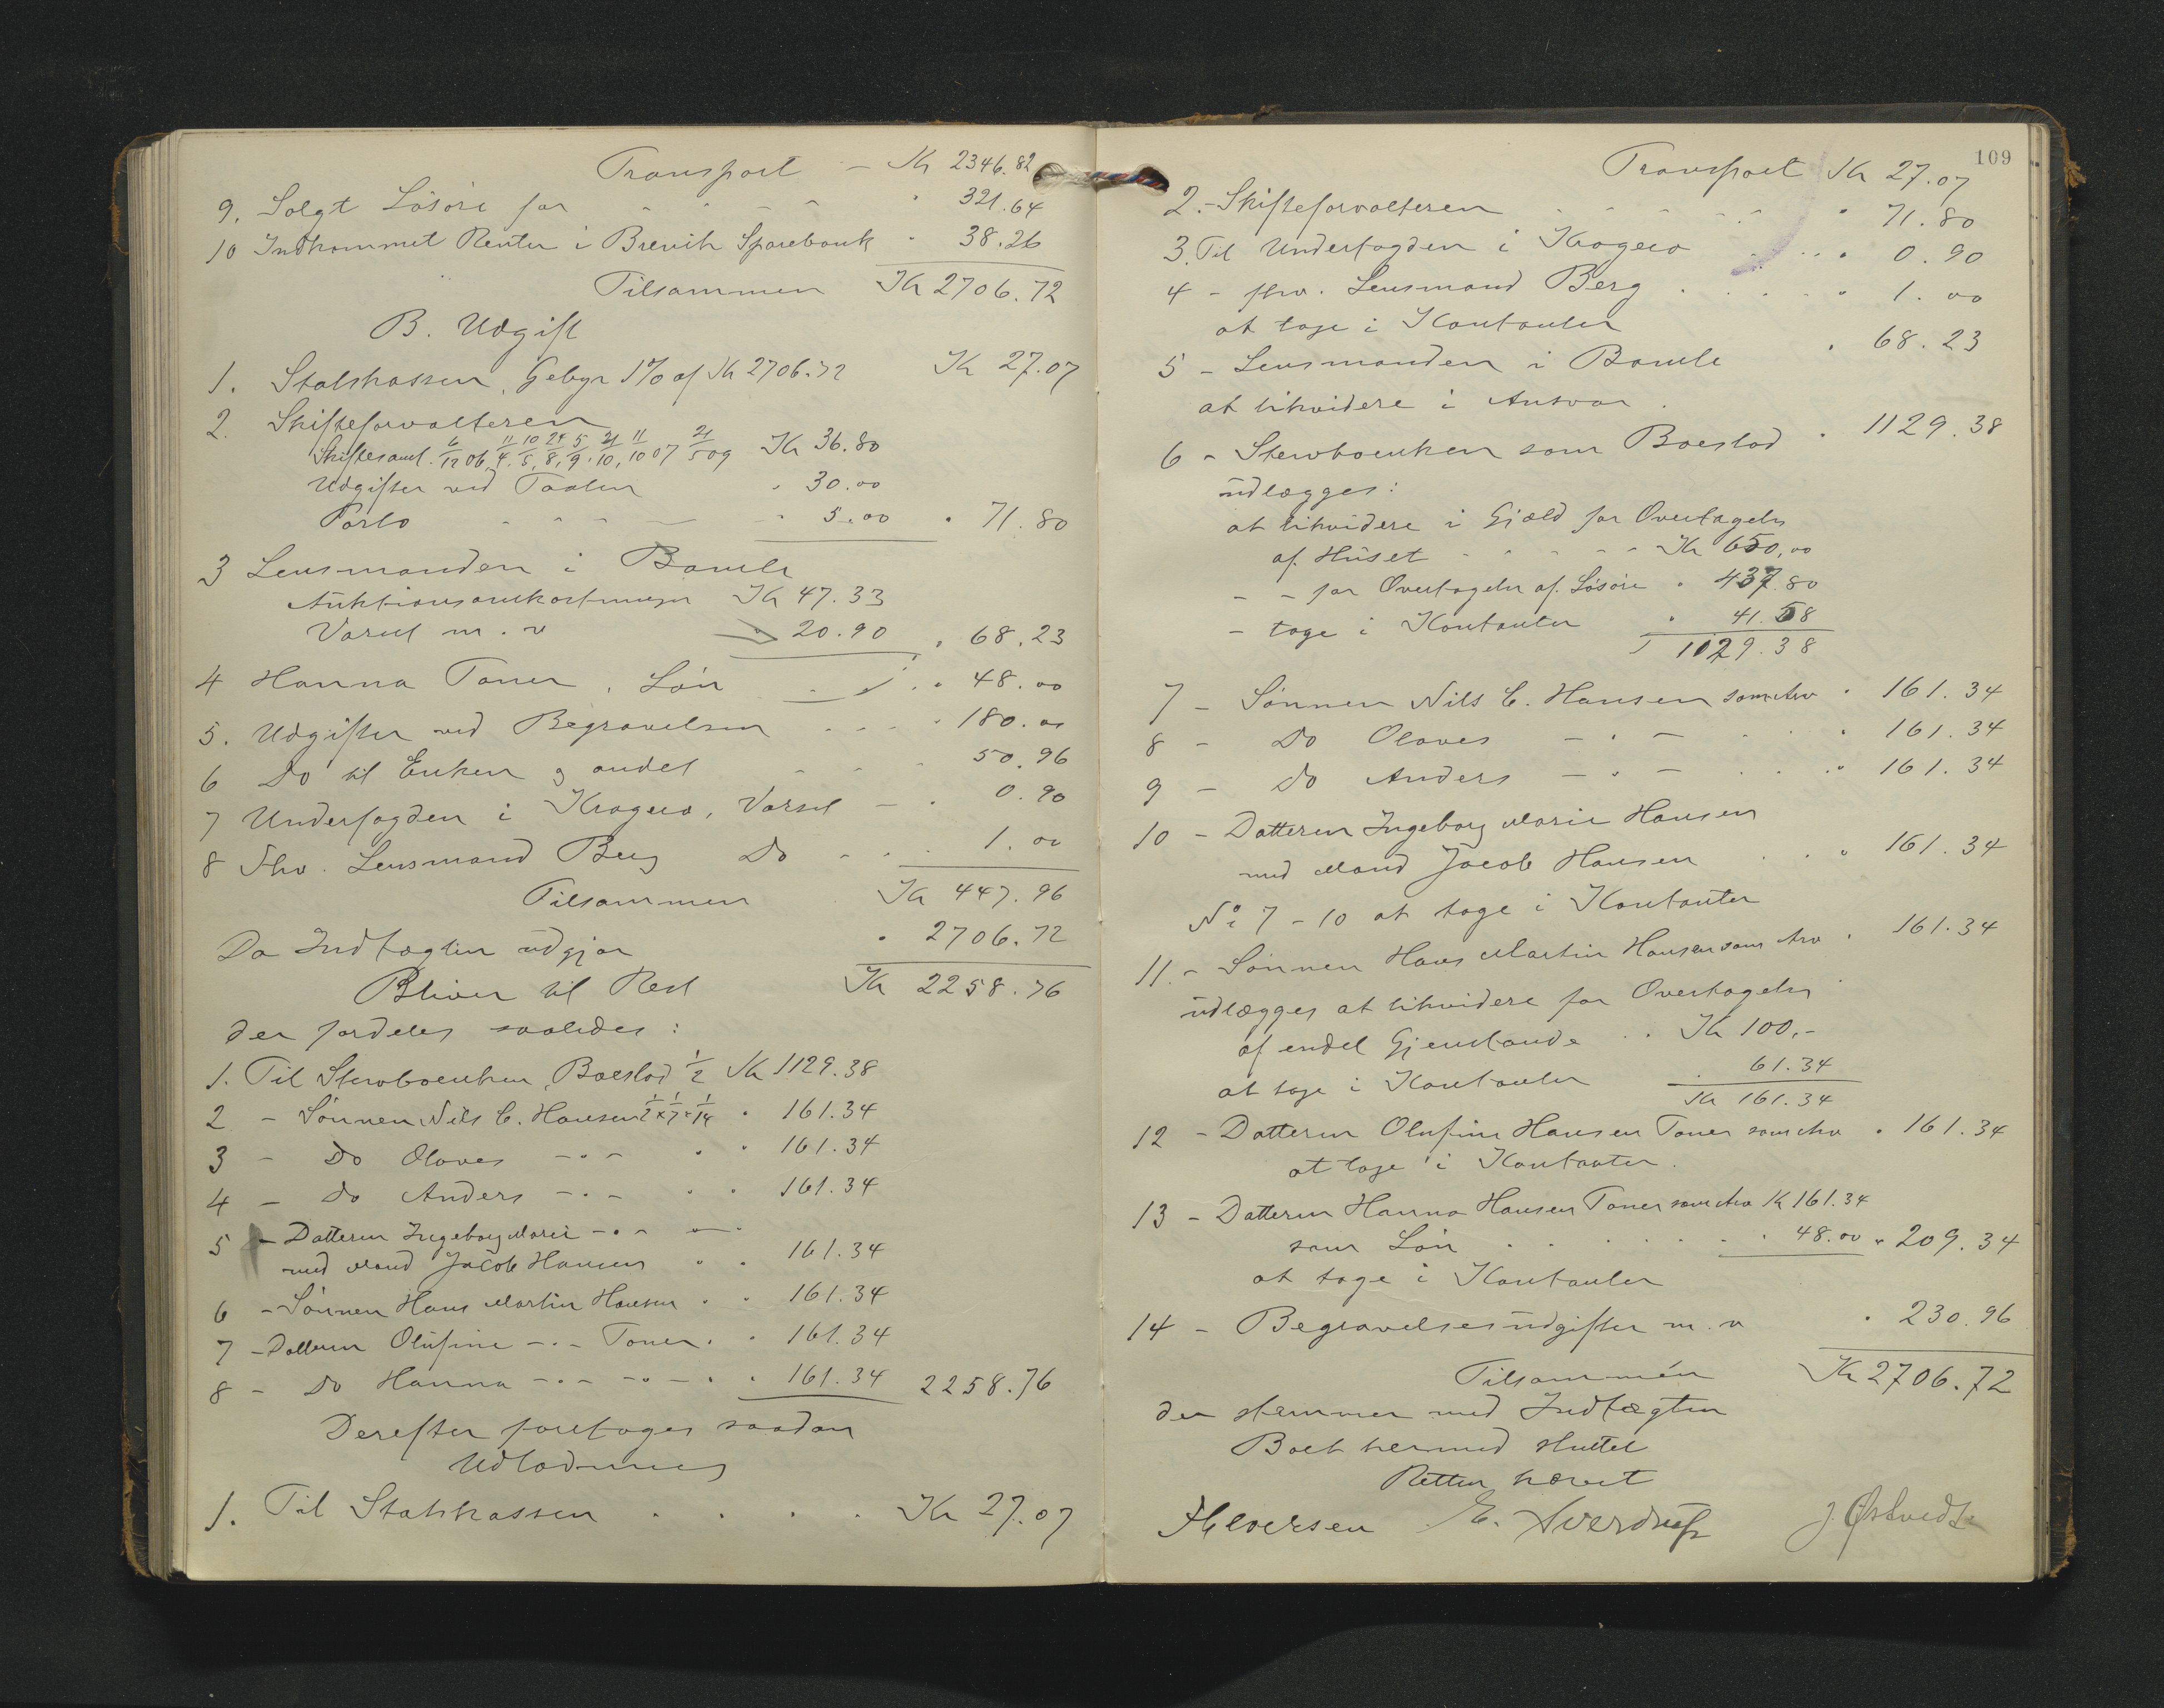 Transport - Kr 2346.82
9. Solgt Løsøre for - - - - " 321.64
10 Indkommet Renter i Brevik Sparebank " 38.26
Tilsammen Kr 2706.72
B. Udgift
1. Statskassen, Gebyr 1% af Kr 2706.72 Kr 27.07
2. Skifteforvalteren
Skiftesaml. 6/12 06, 11/4, 10/5, 24/8, 5/9, 21/10, 11/10 07 21/5 09 Kr 36.80
Udgifter ved Taxten " 30.00
Porto - - - - " 5.00 " 71.80
3 Lensmanden i Bamle
Auktionsomkostninger Kr 47.33
Varsel m. v " 20.90 " 68.23
4 Hanna Toner, Løn - - " 48.00
5. Udgifter ved Begravelsen - - - " 180.00
6 Do til Enken og andet - - - 50.96
7 Underfogden i Kragerø, Varsel - " 0.90
8 Fhv. Lensmand Berg Do - - - 1.00
Tilsammen Kr 447.96
Da Indtægten udgjør " 2706.72
Bliver til Rest Kr 2258.76
der fordeles saaledes:
1. Til Stervboenken, Boeslod 1/2 Kr 1129.38
2 - Sønnen Nils C. Hansen 1/2 x 1/7 = 1/14 " 161.34
3 - Do Olaves -"- " " 161.34
4 - Do Anders -"- " " 161.34
5 - Datteren Ingeborg Marie -"- -"
med Mand Jacob Hansen " " 161.34
6 - Sønnen Hans Martin Hansen " " 161.34
7 - Datteren Olufine -"- Toner " " 161.34
8 - Do Hanna -"- -"- " " 161.34 2258.76
Derefter foretages saadan
Udlodning
1. Til Statskassen . . . . Kr 27.07
109
Transport Kr 27.07
2. - Skifteforvalteren - - - - - " 71.80
3. Til Underfogden i Kragerø - - - " 0.90
4 - fhv. Lensmand Berg . . . . . " 1.00
at tage i Kontanter
5 - Lensmanden i Bamle " 68.23
at likvidere i Ansvar.
6 - Stervboenken som Boeslod " 1129.38
udlægges:
at likvidere i Gjæld for Overtagelse
af Huset - - - - - Kr 650,00
- - for Overtagelse af Løsøre " 437.80
- tage i Kontanter " 41.58
1129.38
7 - Sønnen Nils C. Hansen som Arv " 161.34
8 - Do Olaves - " - . . " 161.34
9 - Do Anders - " - . . " 161.34
10 - Datteren Ingeborg Marie Hansen
med Mand Jacob Hansen . . " 161.34
No 7 - 10 at tage i Kontanter
11. - Sønnen Hans Martin Hansen som Arv " 161.34
udlægges at likvidere for Overtagelse
af endel Gjenstande . . Kr 100,-
at tage i Kontanter " 61.34
Kr 161.34
12 - Datteren Olufine Hansen Toner som Arv " 161.34
at tage i Kontanter.
13 - Datteren Hanna Hansen Toner som Arv K 161.34
som Løn . . . . . . " 48.00 " 209.34
at tage i Kontanter
14 - Begravelsesudgifter m. v " 230.96
Tilsammen Kr 2706.72
der stemmer med Indtægten
Boet hermed sluttet
Retten hævet
E. Sverdrup J. Østvedt